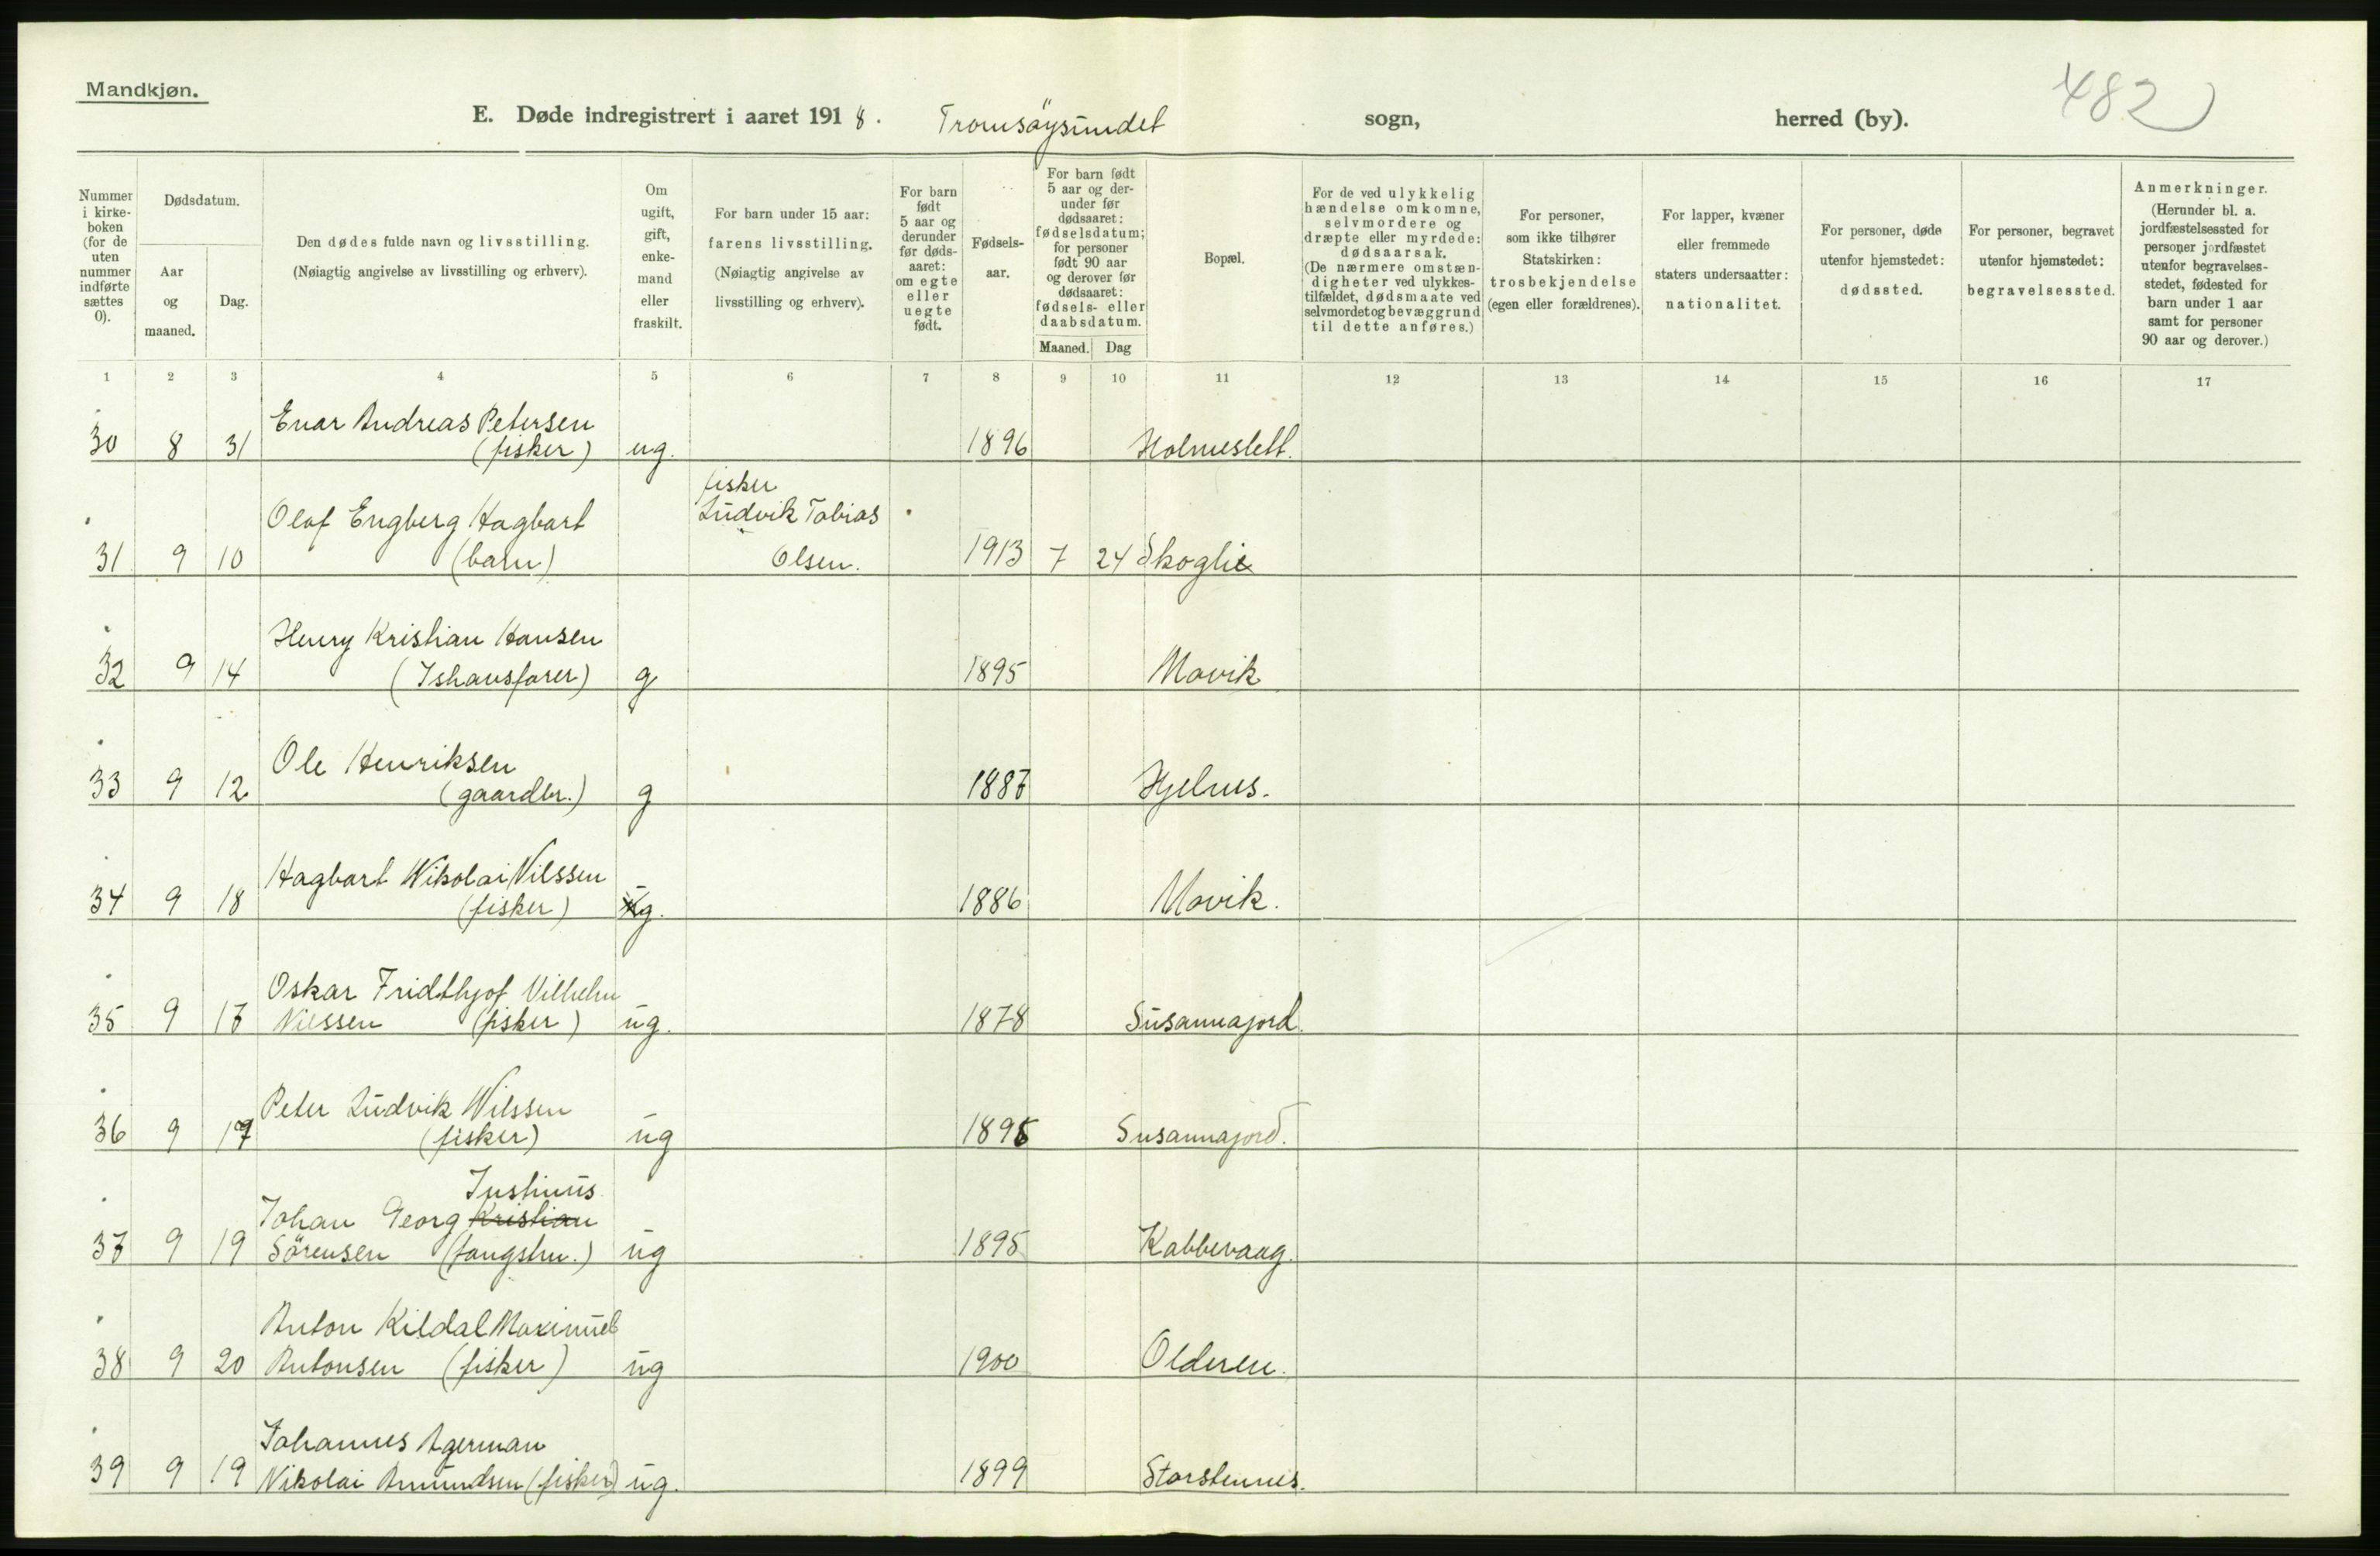 Mandkjøn.
E. Døde indregistrert i aaret 1918. Tromsöysundet sogn, herred (by). 482
Nummer i kirke- boken (for de uten nummer indførte sættes 0).
Dødsdatum.
Aar og maaned.
Dag.
Den dødes fulde navn og livsstilling.
(Nøiagtig angivelse av livsstilling og erhverv).
Om ugift, gift, enke- mand eller fraskilt.
For barn under 15 aar:
farens livsstilling.
(Nøiagtig angivelse av
livsstilling og erhverv).
For barn født 5 aar og derunder før døds- aaret: om egte eller uegte født.
Fødsels- aar.
For barn født 5 aar og der- under før dødsaaret: fødselsdatum; for personer født 90 aar og derover før dødsaaret: fødsels- eller daabsdatum.
Maaned. Dag
Bopæl.
For de ved ulykkelig hændelse omkomne, selvmordere og dræpte eller myrdede: dødsaarsak. (De nærmere omstæn- digheter ved ulykkes- tilfældet, dødsmaate ved selvmordet og bevæggrund til dette anføres.)
For personer, som ikke tilhører Statskirken: trosbekjendelse (egen eller forældrenes).
For lapper, kvæner eller fremmede staters undersaatter: nationalitet.
For personer, døde utenfor hjemstedet: dødssted.
For personer, begravet utenfor hjemstedet: begravelsessted.
Anmerkninger. (Herunder bl. a. jordfæstelsessted for personer jordfæstet utenfor begravelses- stedet, fødested for barn under 1 aar samt for personer 90 aar og derover.)
1 2 3 4 5 6 7 8 9 10 11 12 13 14 15 16 17
Enar Andreas Petersen
30 8 31 (fisker) ug. 1896 Holmeslett.
fisker
Olaf Engberg Hagbart Ludvik Tobias
31 9 10 (barn) Olsen. 1913 7 24 Skoglie
Henry Kristian Hansen
32 9 14 (Ishavsfarer) g 1895 Movik
Ole Henriksen
33 9 12 (gaardbr.) g 1887 Hjelnes.
Hagbart Nikolai Nilssen
34 9 18 (fisker) g. 1886 Movik.
Oskar Fridthjof Vilhelm
35 9 17 Nilssen (fisker) ug. 1878 Susannajord.
Peter Ludvik Nilssen
36 9 17 (fisker) ug Susannajord.
Justinus
Johan Georg Kristian
37 9 19 Sörensen (fangstm.) ug 1895 Kabbevaag.
Anton Kildal
38 9 20 Antonsen (fisker) ug 1900 Olderen.
Johannes Agerman
39 9 19 Nikolai Amundsen (fisker) ug. 1899 Storstennes.